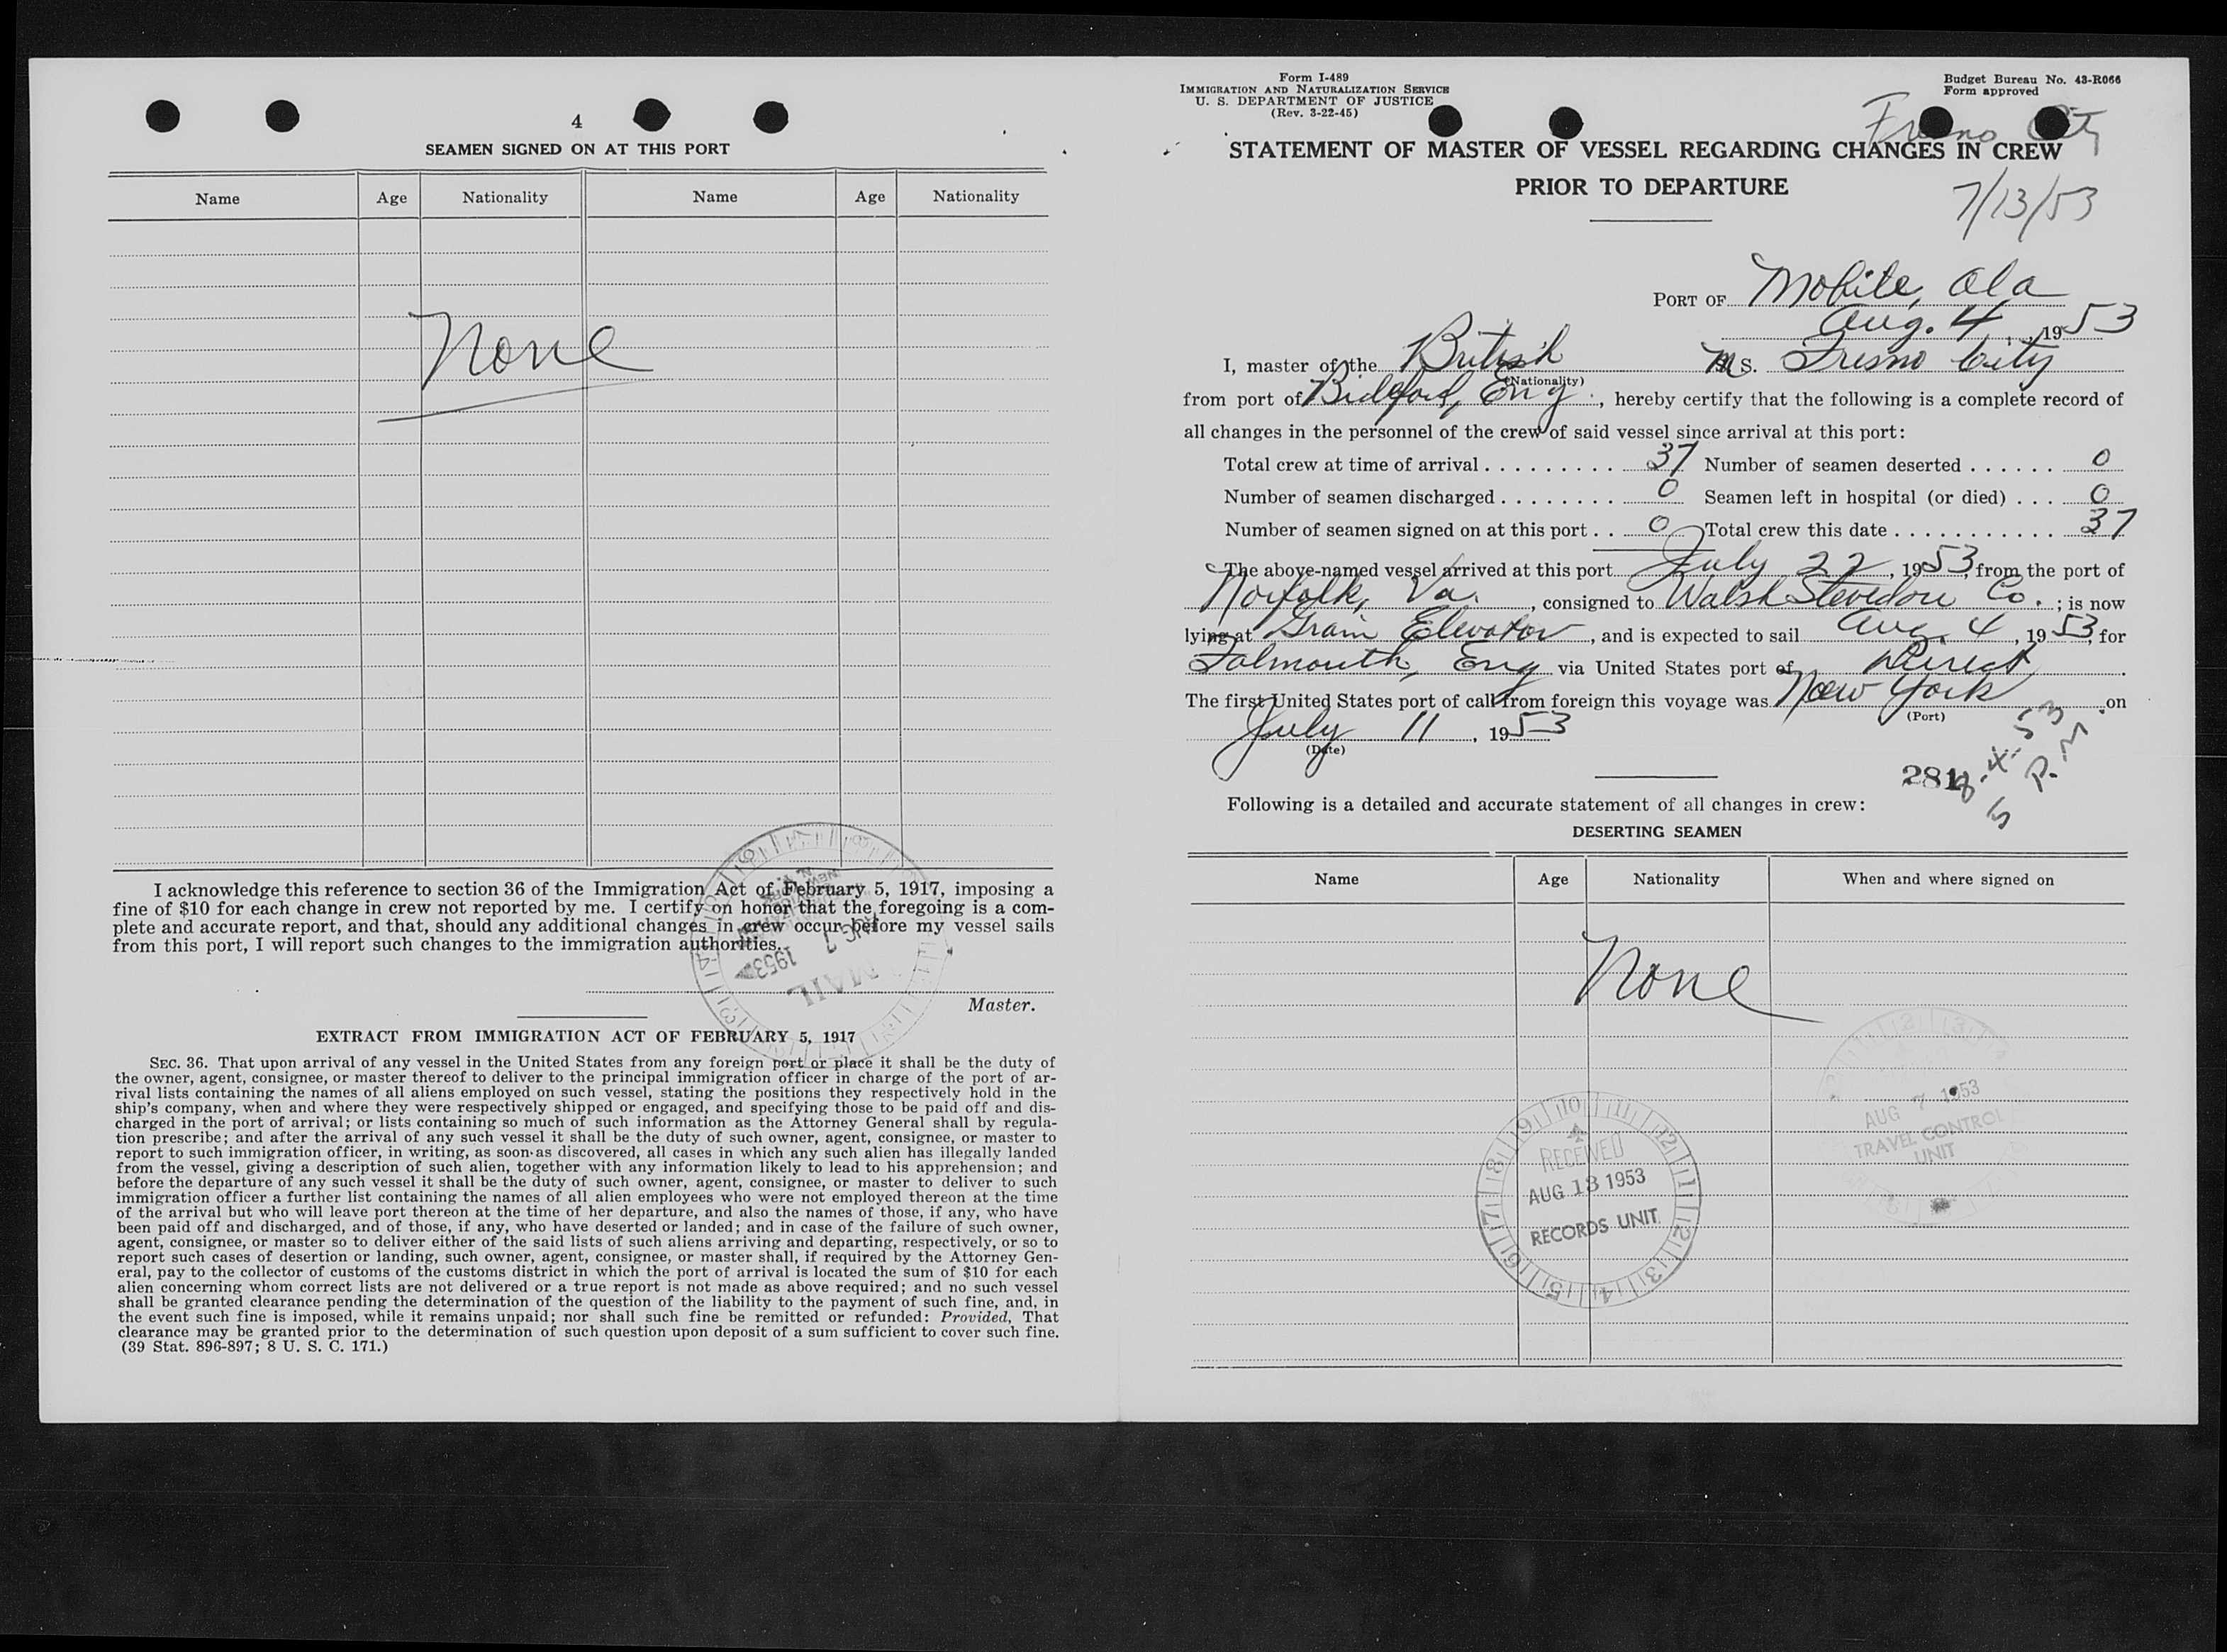 4
SEAMEN SIGNED ON AT THIS PORT
Name Age Nationality Name Age Nationality
None
I acknowledge this reference to section 36 of the Immigration Act of February 5, 1917, imposing a
fine of $10 for each change in crew not reported by me. I certify on honor that the foregoing is a com-
plete and accurate report, and that, should any additional changes in crew occur before my vessel sails
from this port, I will report such changes to the immigration authorities.
AUG 7 1953
MAIL
Master.
EXTRACT FROM IMMIGRATION ACT OF FEBRUARY 5, 1917
SEC. 36. That upon arrival of any vessel in the United States from any foreign port or place it shall be the duty of
the owner, agent, consignee, or master thereof to deliver to the principal immigration officer in charge of the port of ar-
rival lists containing the names of all aliens employed on such vessel, stating the positions they respectively hold in the
ship's company, when and where they were respectively shipped or engaged, and specifying those to be paid off and dis-
charged in the port of arrival; or lists containing so much of such information as the Attorney General shall by regula-
tion prescribe; and after the arrival of any such vessel it shall be the duty of such owner, agent, consignee, or master to
report to such immigration officer, in writing, as soon as discovered, all cases in which any such alien has illegally landed
from the vessel, giving a description of such alien, together with any information likely to lead to his apprehension; and
before the departure of any such vessel it shall be the duty of such owner, agent, consignee, or master to deliver to such
immigration officer a further list containing the names of all alien employees who were not employed thereon at the time
of the arrival but who will leave port thereon at the time of her departure, and also the names of those, if any, who have
been paid off and discharged, and of those, if any, who have deserted or landed; and in case of the failure of such owner,
agent, consignee, or master so to deliver either of the said lists of such aliens arriving and departing, respectively, or so to
report such cases of desertion or landing, such owner, agent, consignee, or master shall, if required by the Attorney Gen-
eral, pay to the collector of customs of the customs district in which the port of arrival is located the sum of $10 for each
alien concerning whom correct lists are not delivered or a true report is not made as above required; and no such vessel
shall be granted clearance pending the determination of the question of the liability to the payment of such fine, and, in
the event such fine is imposed, while it remains unpaid; nor shall such fine be remitted or refunded: Provided, That
clearance may be granted prior to the determination of such question upon deposit of a sum sufficient to cover such fine.
(39 Stat. 896-897; 8 U. S. C. 171.)
Form I-489
IMMIGRATION AND NATURALIZATION SERVICE
U. S. DEPARTMENT OF JUSTICE
(Rev. 3-22-45)
Budget Bureau No. 43-R066
Form approved
Fresno City
STATEMENT OF MASTER OF VESSEL REGARDING CHANGES IN CREW
PRIOR TO DEPARTURE
7/13/53
PORT OF Mobile, Ala
Aug. 4, 1953
I, master of the British MS. Fresno City
(Nationality)
from port of Bideford, Eng., hereby certify that the following is a complete record of
all changes in the personnel of the crew of said vessel since arrival at this port:
Total crew at time of arrival 37 Number of seamen deserted 0
Number of seamen discharged 0 Seamen left in hospital (or died) 0
Number of seamen signed on at this port 0 Total crew this date 37
The above-named vessel arrived at this port July 22, 1953, from the port of
Norfolk, Va., consigned to Walsh Stevedore Co.; is now
lying at Grain Elevator, and is expected to sail Aug. 4, 1953, for
Falmouth, Eng via United States port of Direct.
The first United States port of call from foreign this voyage was New York on
(Port)
July 11, 1953
(Date)
281
8-4-53
5 P.M.
Following is a detailed and accurate statement of all changes in crew:
DESERTING SEAMEN
Name Age Nationality When and where signed on
None
AUG 7 1953
TRAVEL CONTROL
UNIT
9 10 11 12 1 2 3 4 5 6 7 8
RECEIVED
AUG 18 1953
RECORDS UNIT